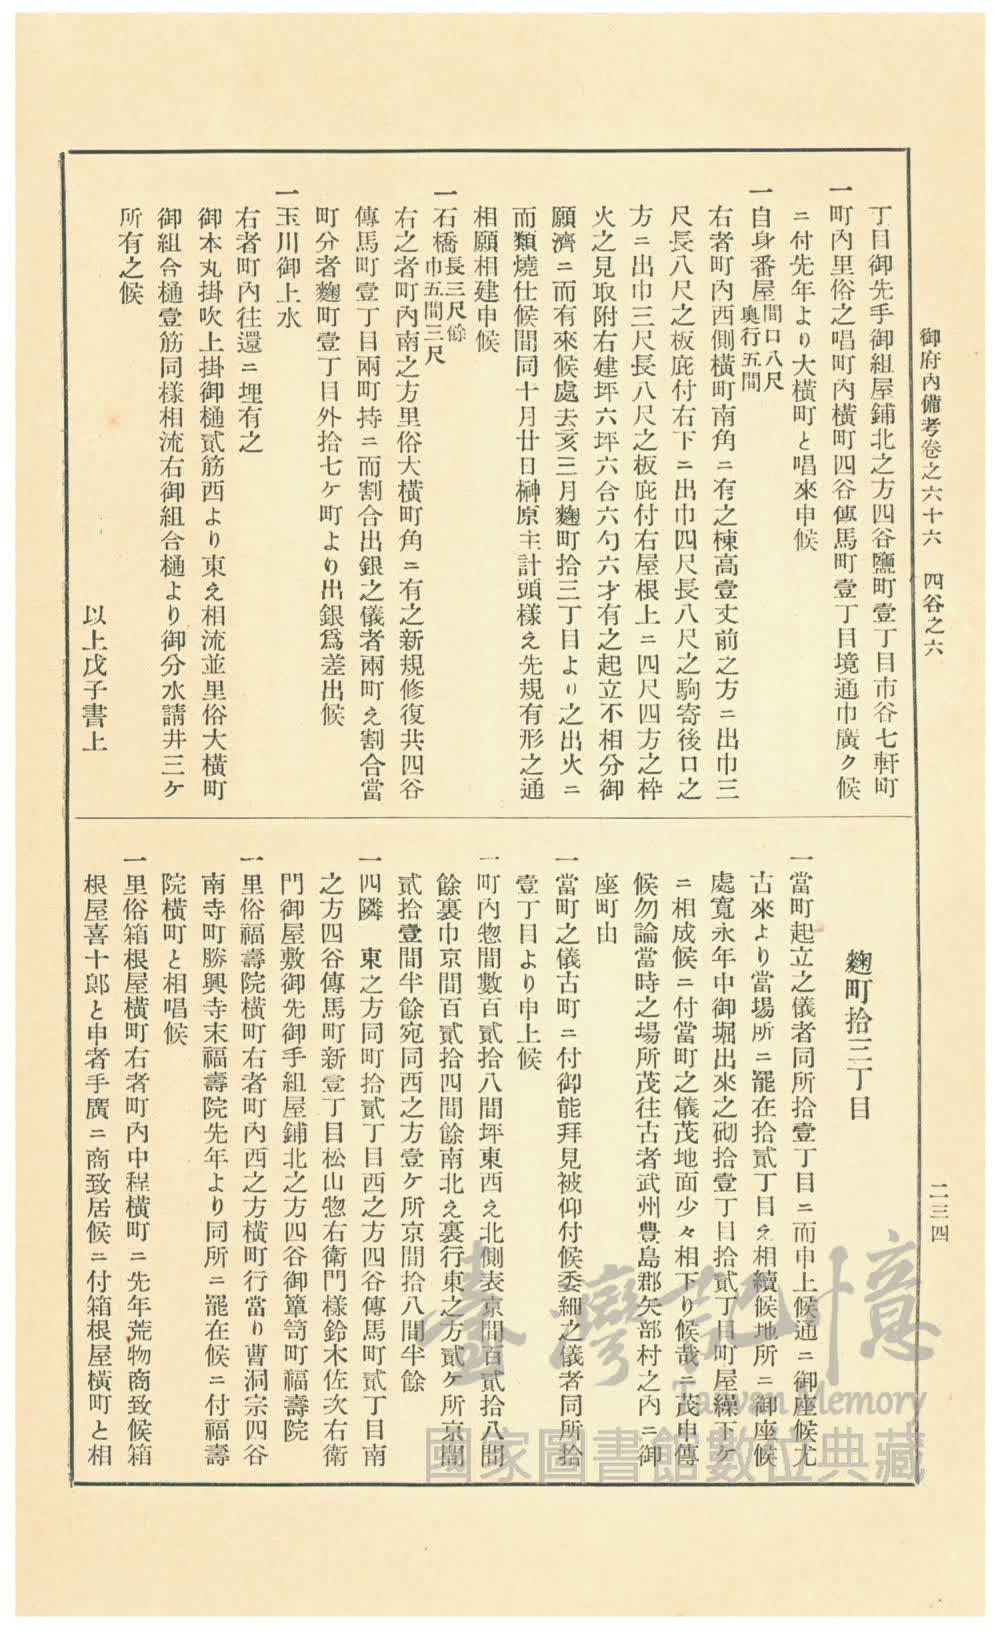 御府內備考卷之六十六　四谷之六
二三四
丁目御先手御組屋鋪北之方四谷鹽町壹丁目市谷七軒町
一町內里俗之唱町內橫町四谷傳馬町壹丁目境通巾廣ク候
ニ付先年より大橫町と唱來申候
一自身番屋間口八尺奧行五間
右者町內西側橫町南角ニ有之棟高壹丈前之方ニ出巾三
尺長八尺之板庇付右下ニ出巾四尺長八尺之駒寄後口之
方ニ出巾三尺長八尺之板庇付右屋根上ニ四尺四方之枠
火之見取附右建坪六坪六合六勺六才有之起立不相分御
願濟ニ而有來候處去亥三月麴町拾三丁目より之出火ニ
而類燒仕候間同十月廿日榊原主計頭樣え先規有形之通
相願相建申候
一石橋長三尺餘巾五間三尺
右之者町內南之方里俗大橫町角ニ有之新規修復共四谷
傳馬町壹丁目兩町持ニ而割合出銀之儀者兩町え割合當
町分者麴町壹丁目外拾七ケ町より出銀爲差出候
一玉川御上水
右者町內往還ニ埋有之
御本丸掛吹上掛御樋貳筋西より東え相流並里俗大橫町
御組合樋壹筋同樣相流右御組合樋より御分水請井三ケ
所有之候
以上戊子書上
麴町拾三丁目
一當町起立之儀者同所拾壹丁目ニ而申上候通ニ御座候尤
古來より當場所ニ罷在拾貳丁目え相續候地所ニ御座候
處寬永年中御堀出來之砌拾壹丁目拾貳丁目町屋繰下ケ
ニ相成候ニ付當町之儀茂地面少々相下り候哉ニ茂申傳
候勿論當時之場所茂往古者武州豊島郡矢部村之內ニ御
座町由
一當町之儀古町ニ付御能拜見被仰付候委細之儀者同所拾
壹丁目より申上候
一町內惣間數百貳拾八間坪東西え北側表京間百貳拾八間
餘裏巾京間百貳拾四間餘南北え裏行東之方貳ケ所京間
貳拾壹間半餘宛同西之方壹ケ所京間拾八間半餘
一四隣　東之方同町拾貳丁目西之方四谷傳馬町貳丁目南
之方四谷傳馬町新壹丁目松山惣右衞門樣鈴木佐次右衞
門御屋敷御先御手組屋鋪北之方四谷御簞笥町福壽院
一里俗福壽院橫町右者町內西之方橫町行當り曹洞宗四谷
南寺町勝興寺末福壽院先年より同所ニ罷在候ニ付福壽
院橫町と相唱候
一里俗箱根屋橫町右者町內中程橫町ニ先年荒物商致候箱
根屋喜十郞と申者手廣ニ商致居候ニ付箱根屋橫町と相
臺灣記憶
Taiwan Memory
國家圖書館數位典藏